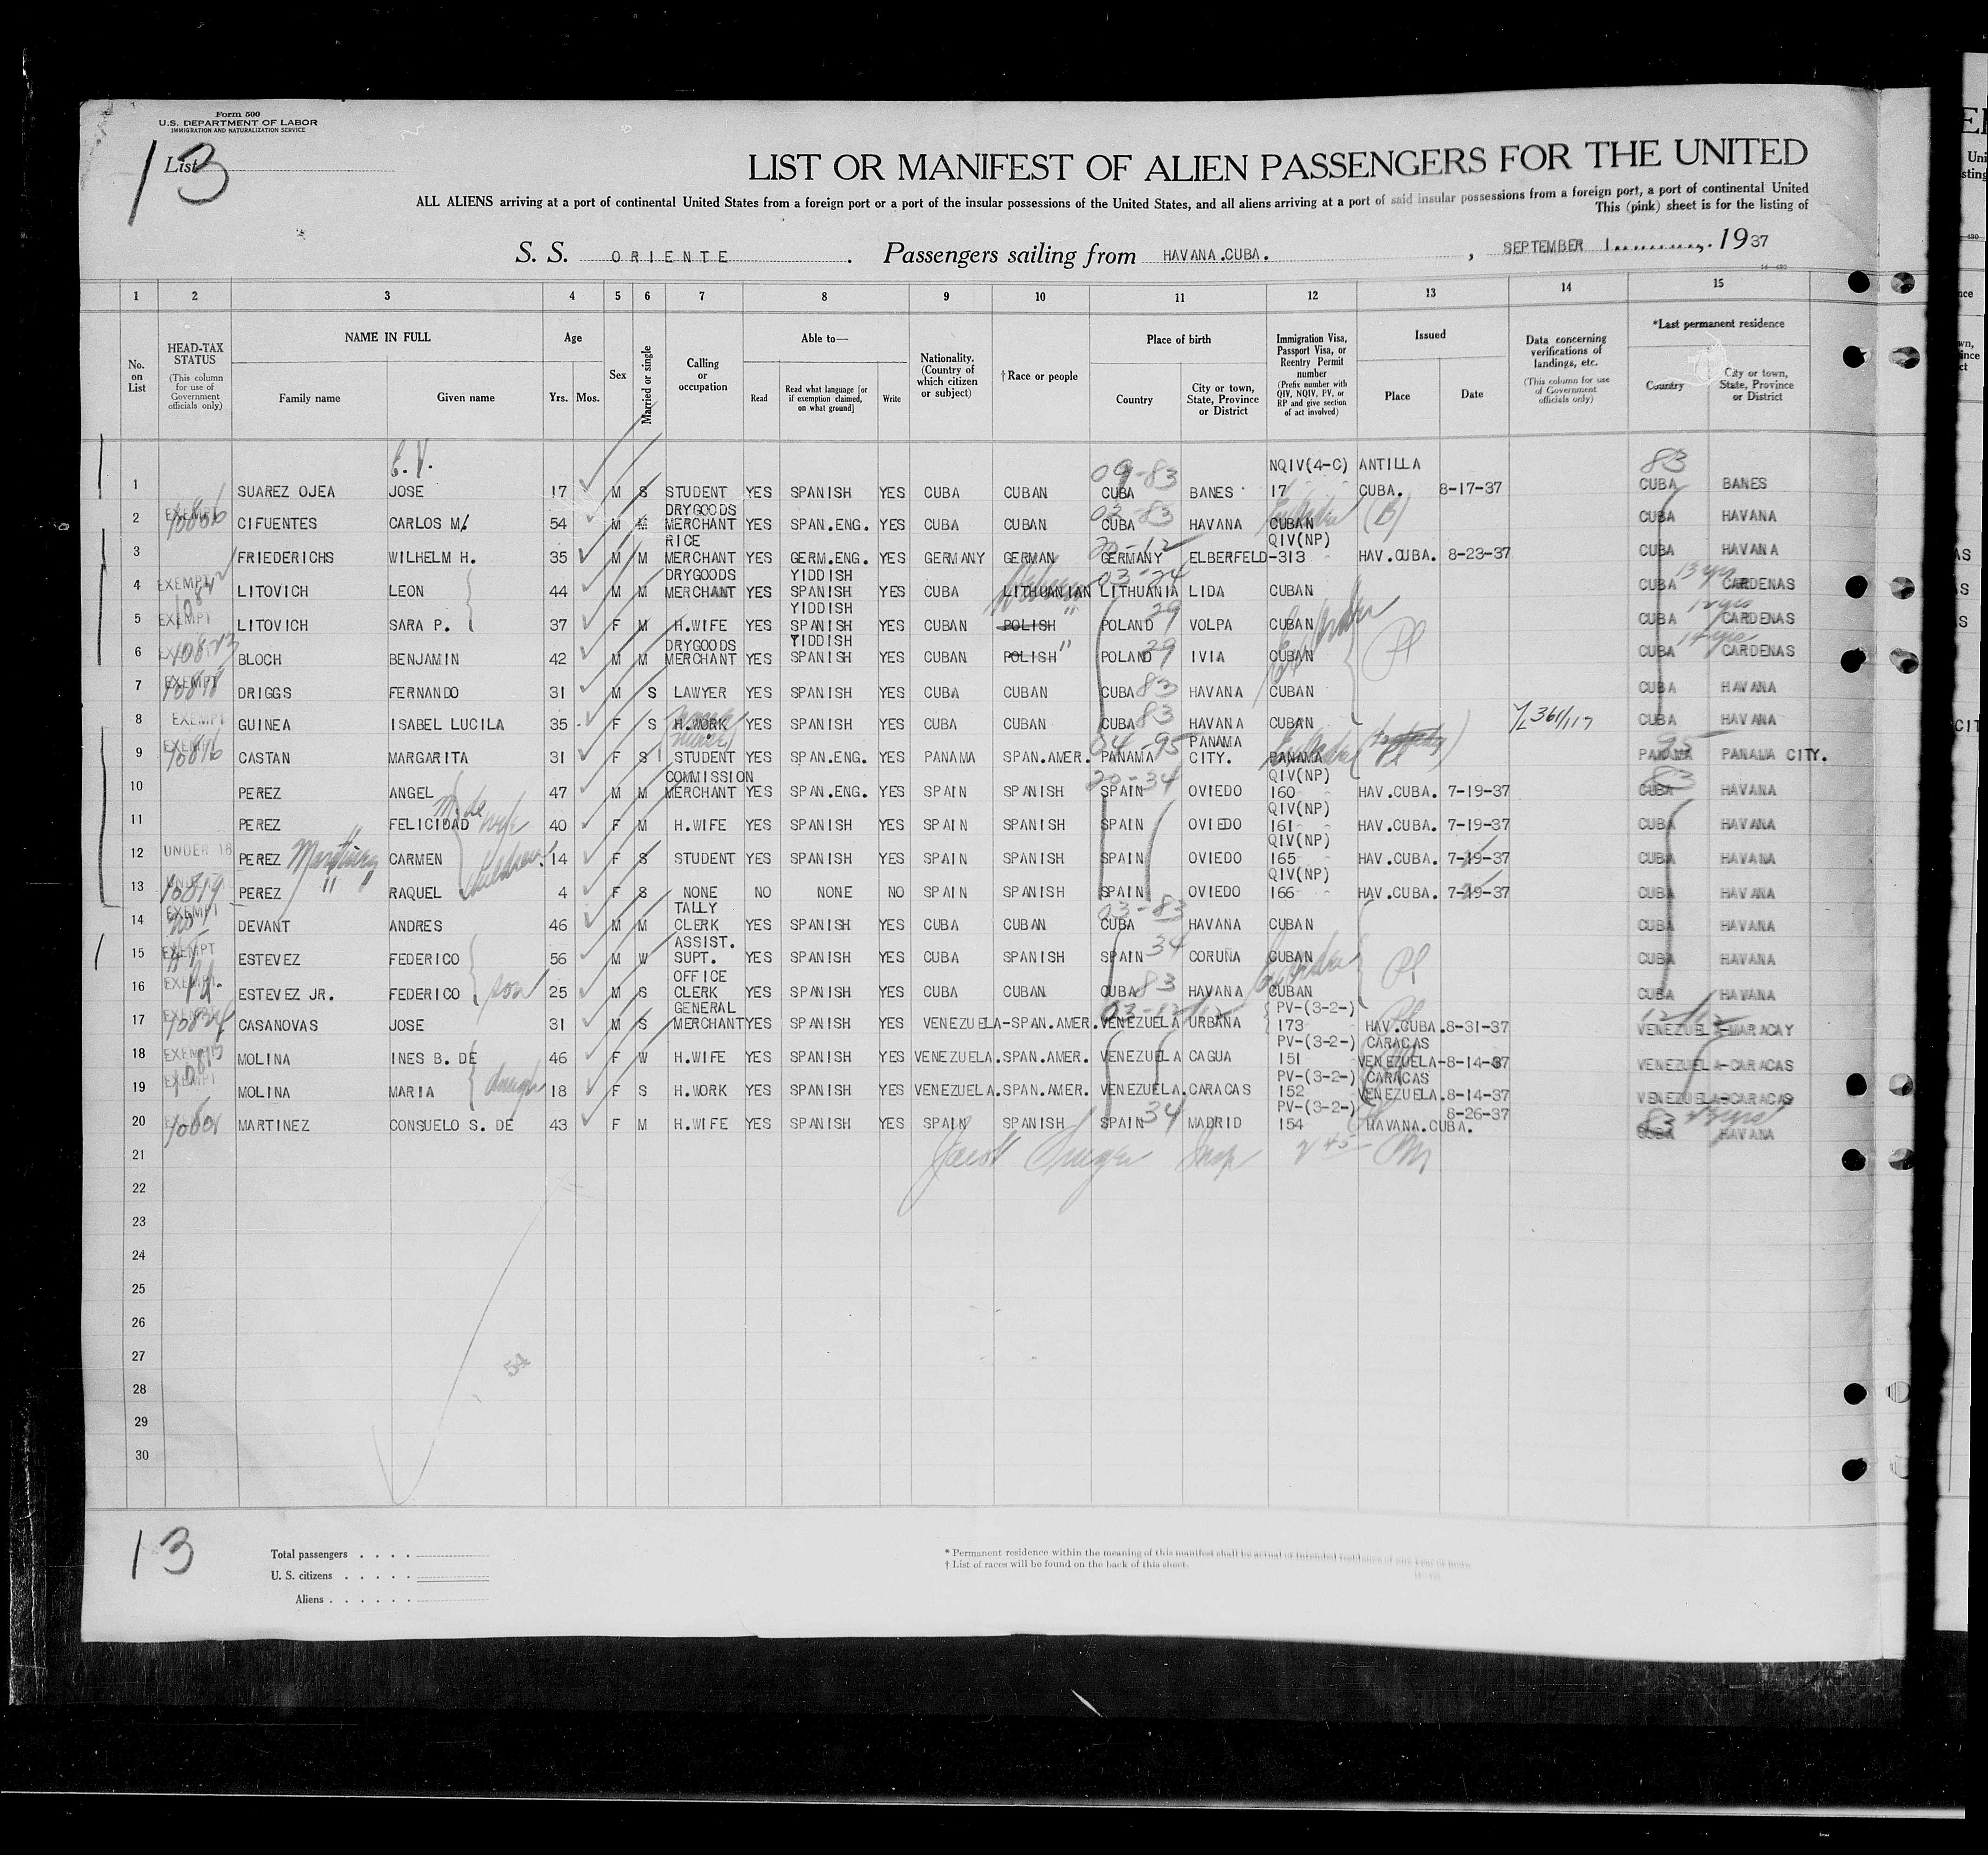 Form 500
U.S. DEPARTMENT OF LABOR
IMMIGRATION AND NATURALIZATION SERVICE
List 13
LIST OR MANIFEST OF ALIEN PASSENGERS FOR THE UNITED
ALL ALIENS arriving at a port of continental United States from a foreign port or a port of the insular possessions of the United States, and all aliens arriving at a port of said insular possessions from a foreign port, a port of continental United
This (pink) sheet is for the listing of
S. S. ORIENTE. Passengers sailing from HAVANA.CUBA. , SEPTEMBER 1, 1937
1 2 3 4 5 6 7 8 9 10 11 12 13 14 15
No. on List
HEAD-TAX STATUS (This column for use of Government officials only)
NAME IN FULL Family name Given name
Age Yrs. Mos.
Sex
Married or single
Calling or occupation
Able to— Read Read what language [or if exemption claimed, on what ground] Write
Nationality. (Country of which citizen or subject)
†Race or people
Place of birth Country City or town, State, Province or District
Immigration Visa, Passport Visa, or Reentry Permit number (Prefix number with QIV, NQIV, PV, or RP and give section of act involved)
Issued Place Date
Data concerning verifications of landings, etc. (This column for use of Government officials only)
*Last permanent residence Country City or town, State, Province or District
1 SUAREZ OJEA JOSE 17 M S STUDENT YES SPANISH YES CUBA CUBAN 09-83 CUBA BANES NQIV(4-C) 17 ANTILLA CUBA. 8-17-37 83 CUBA BANES
2 EXEMPT CIFUENTES CARLOS M. 54 M M DRYGOODS MERCHANT YES SPAN.ENG. YES CUBA CUBAN CUBA HAVANA CUBAN (B) CUBA HAVANA
3 FRIEDERICHS WILHELM H. 35 M M RICE MERCHANT YES GERM.ENG. YES GERMANY GERMAN 20-12 GERMANY ELBERFELD QIV(NP) -313 HAV.CUBA. 8-23-37 CUBA HAVANA
4 EXEMPT LITOVICH LEON 44 M M DRYGOODS MERCHANT YES YIDDISH SPANISH YES CUBA LITHUANIAN LITHUANIA LIDA CUBAN CUBA 13 yrs CARDENAS
5 EXEMPT LITOVICH SARA P. 37 F M H.WIFE YES YIDDISH SPANISH YES CUBAN POLISH " POLAND 29 VOLPA CUBAN CUBA 12 yrs CARDENAS
6 BLOCH BENJAMIN 42 M M DRYGOODS MERCHANT YES YIDDISH SPANISH YES CUBAN POLISH " POLAND 29 IVIA CUBAN CUBA CARDENAS
7 EXEMPT DRIGGS FERNANDO 31 M S LAWYER YES SPANISH YES CUBA CUBAN CUBA 83 HAVANA CUBAN CUBA HAVANA
8 EXEMPT GUINEA ISABEL LUCILA 35 F S H.WORK YES SPANISH YES CUBA CUBAN CUBA 83 HAVANA CUBAN CUBA HAVANA
9 CASTAN MARGARITA 31 F S STUDENT YES SPAN.ENG. YES PANAMA SPAN.AMER. 04-95 PANAMA PANAMA CITY. PANAMA 95 PANAMA PANAMA CITY.
10 PEREZ ANGEL 47 M M COMMISSION MERCHANT YES SPAN.ENG. YES SPAIN SPANISH 20-34 SPAIN OVIEDO QIV(NP) 160 HAV.CUBA. 7-19-37 83 CUBA HAVANA
11 PEREZ FELICIDAD wife 40 F M H.WIFE YES SPANISH YES SPAIN SPANISH SPAIN OVIEDO QIV(NP) 161 HAV.CUBA. 7-19-37 CUBA HAVANA
12 UNDER 18 PEREZ CARMEN children 14 F S STUDENT YES SPANISH YES SPAIN SPANISH SPAIN OVIEDO QIV(NP) 165 HAV.CUBA. 7-19-37 CUBA HAVANA
13 PEREZ " RAQUEL 4 F S NONE NO NONE NO SPAIN SPANISH SPAIN OVIEDO QIV(NP) 166 HAV.CUBA. 7-19-37 CUBA HAVANA
14 EXEMPT DEVANT ANDRES 46 M M TALLY CLERK YES SPANISH YES CUBA CUBAN 03-83 CUBA HAVANA CUBAN CUBA HAVANA
15 EXEMPT ESTEVEZ FEDERICO 56 M W ASSIST. SUPT. YES SPANISH YES CUBA SPANISH SPAIN 34 CORUÑA CUBAN CUBA HAVANA
16 EXEMPT ESTEVEZ JR. FEDERICO son 25 M S OFFICE CLERK YES SPANISH YES CUBA CUBAN CUBA 83 HAVANA CUBAN CUBA HAVANA
17 CASANOVAS JOSE 31 M S GENERAL MERCHANT YES SPANISH YES VENEZUELA-SPAN.AMER. VENEZUELA URBANA PV-(3-2-) 173 HAV.CUBA. 8-31-37 VENEZUELA-MARACAY
18 MOLINA INES B. DE 46 F W H.WIFE YES SPANISH YES VENEZUELA.SPAN.AMER. VENEZUELA CAGUA PV-(3-2-) 151 CARACAS VENEZUELA-8-14-37 VENEZUELA-CARACAS
19 EXEMPT MOLINA MARIA 18 F S H.WORK YES SPANISH YES VENEZUELA.SPAN.AMER. VENEZUELA.CARACAS PV-(3-2-) 152 CARACAS VENEZUELA.8-14-37 VENEZUELA-CARACAS
20 MARTINEZ CONSUELO S. DE 43 F M H.WIFE YES SPANISH YES SPAIN SPANISH SPAIN 34 MADRID PV-(3-2-) 154 HAVANA.CUBA. 8-26-37 83 CUBA HAVANA
21
22
23
24
25
26
27
28
29
30
54
13
Total passengers . . . .
U. S. citizens . . . . .
Aliens . . . . . .
* Permanent residence within the meaning of this manifest shall be actual or intended residence of one year or more.
† List of races will be found on the back of this sheet.